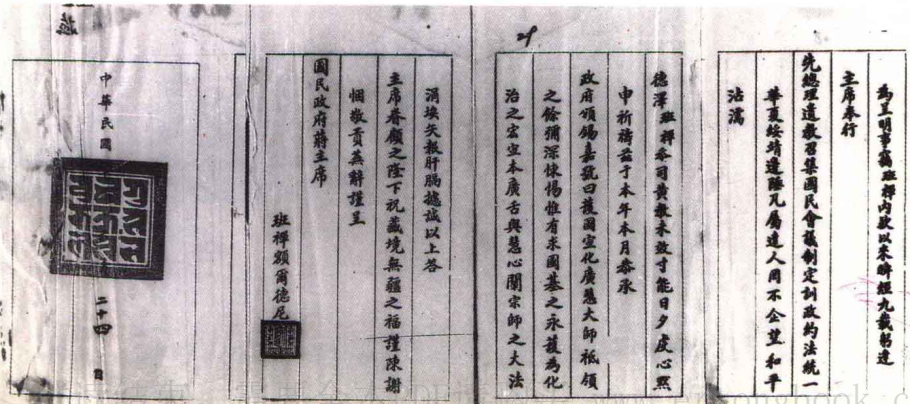 為呈明事竊班禪內欵以來時經九載躬逢
主席奉行
先總理遺教召集國民會議制定訓政約法統一
華夏綏靖邊陲凡屬遠人罔不企望和平
沾濡
德澤班禪忝司黃教未效寸能日夕虔心默
申祈禱茲于本年本月恭承
政府頒錫嘉號曰護國宣化廣慧大師祗領
之餘彌深悚惕惟有求國基之永護為化
治之宏宣本廣舌與慧心闡宗師之大法
涓埃矢報肝膈攄誠以上答
主席眷顧之隆下祝藏境無疆之福謹陳謝
悃敬貢蕪辭謹呈
國民政府蔣主席
班禪額爾德尼
中華民國
二十四
日